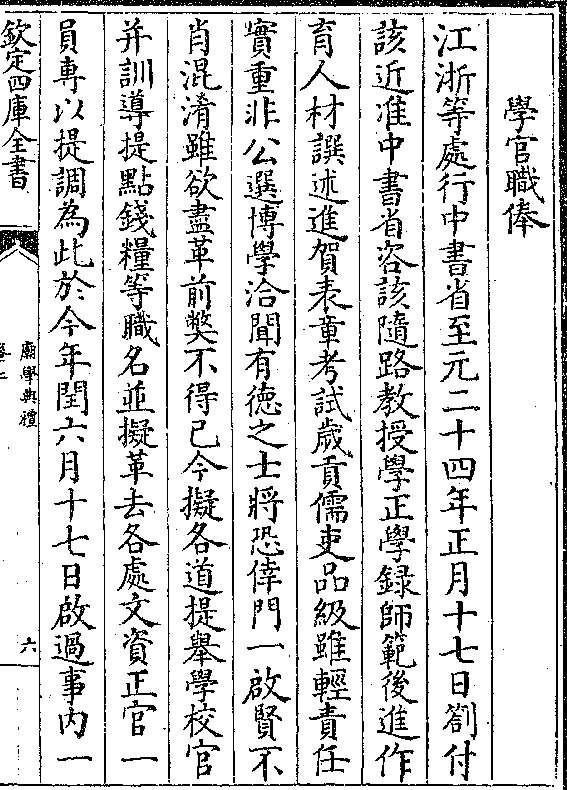 學官職俸
江浙等處行中書省至元二十四年正月十七日劄付
該近准中書省咨該隨路教授學正學錄師範後進作
育人材譔述進賀表章考試歲貢儒吏品級雖輕責任
實重非公選博學洽聞有德之士將恐倖門一啟賢不
肖混淆雖欲盡革前弊不得已今擬各道提舉學校官
并訓導提點錢糧等職名並擬革去各處文資正官一
員專以提調為此於今年閏六月十七日啟過事內一
欽定四庫全書
廟學典禮
六